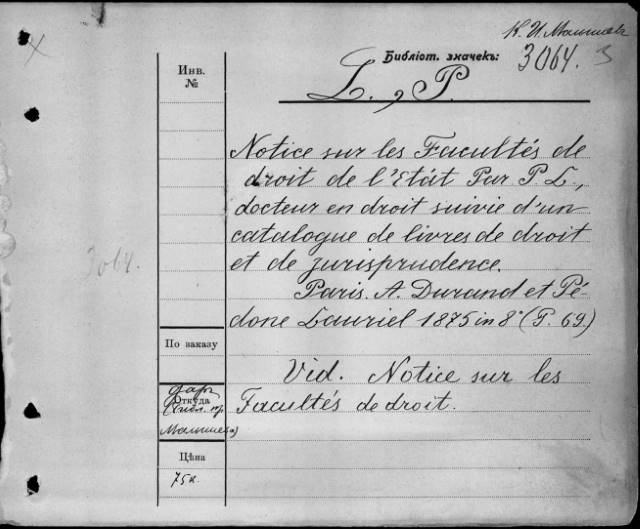 К. И. Малышев
Библіот. значекъ: 3064. 3
Инв.
№
L., P.
Notice sur les Facultés de
droit de l'Etát Par P L.,
docteur en droit suivie d'un
catalogue de livres de droit
et de jurisprudence.
3064.
Paris. A. Durand et Pé-
done Lauriel 1875 in 8° (P. 69.)
По заказу
Vid. Notice sur les
Facultés de droit.
Откуда
Цѣна
75к.